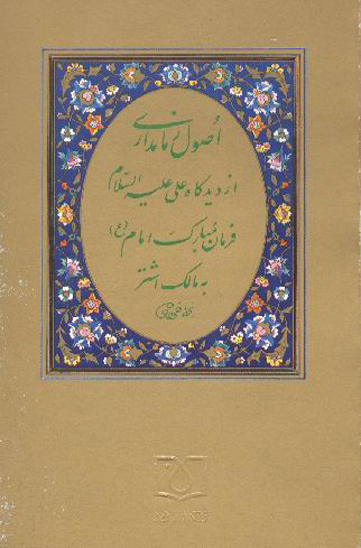 اصول زمامداری
از دیدگاه علی علیه السلام
فرمان مبارک امام (ع)
به مالک اشتر